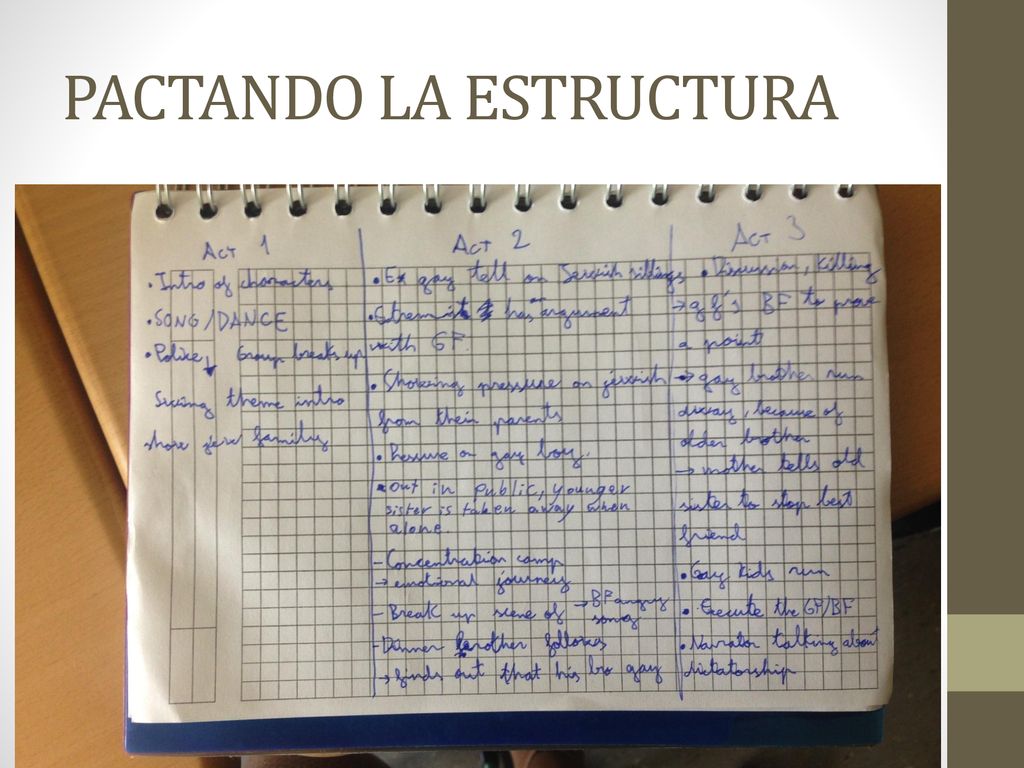 PACTANDO LA ESTRUCTURA
Act 1
• Intro of characters
• SONG/DANCE
• Police ↓ Group breaks up
Swing theme intro
show jew family
Act 2
• Ex gay tell on Jewish sillings
• has argument
with GF.
• Showing pressure on jewish
from their parents
• Pressure on gay boy.
• out in public, younger
sister is taken away when
alone.
- Concentration camp
→ emotional journey
- Break up scene of → BF angry
song
- Dinner brother follows
→ finds out that his bro gay
Act 3
• Discussion, killing
→ gf's BF to prove
a point
→ gay brother run
away, because of
older brother
→ mother tells old
sister to stop best
friend
• Gay kids run
• Execute the GF/BF
• Narrator talking about
dictatorship